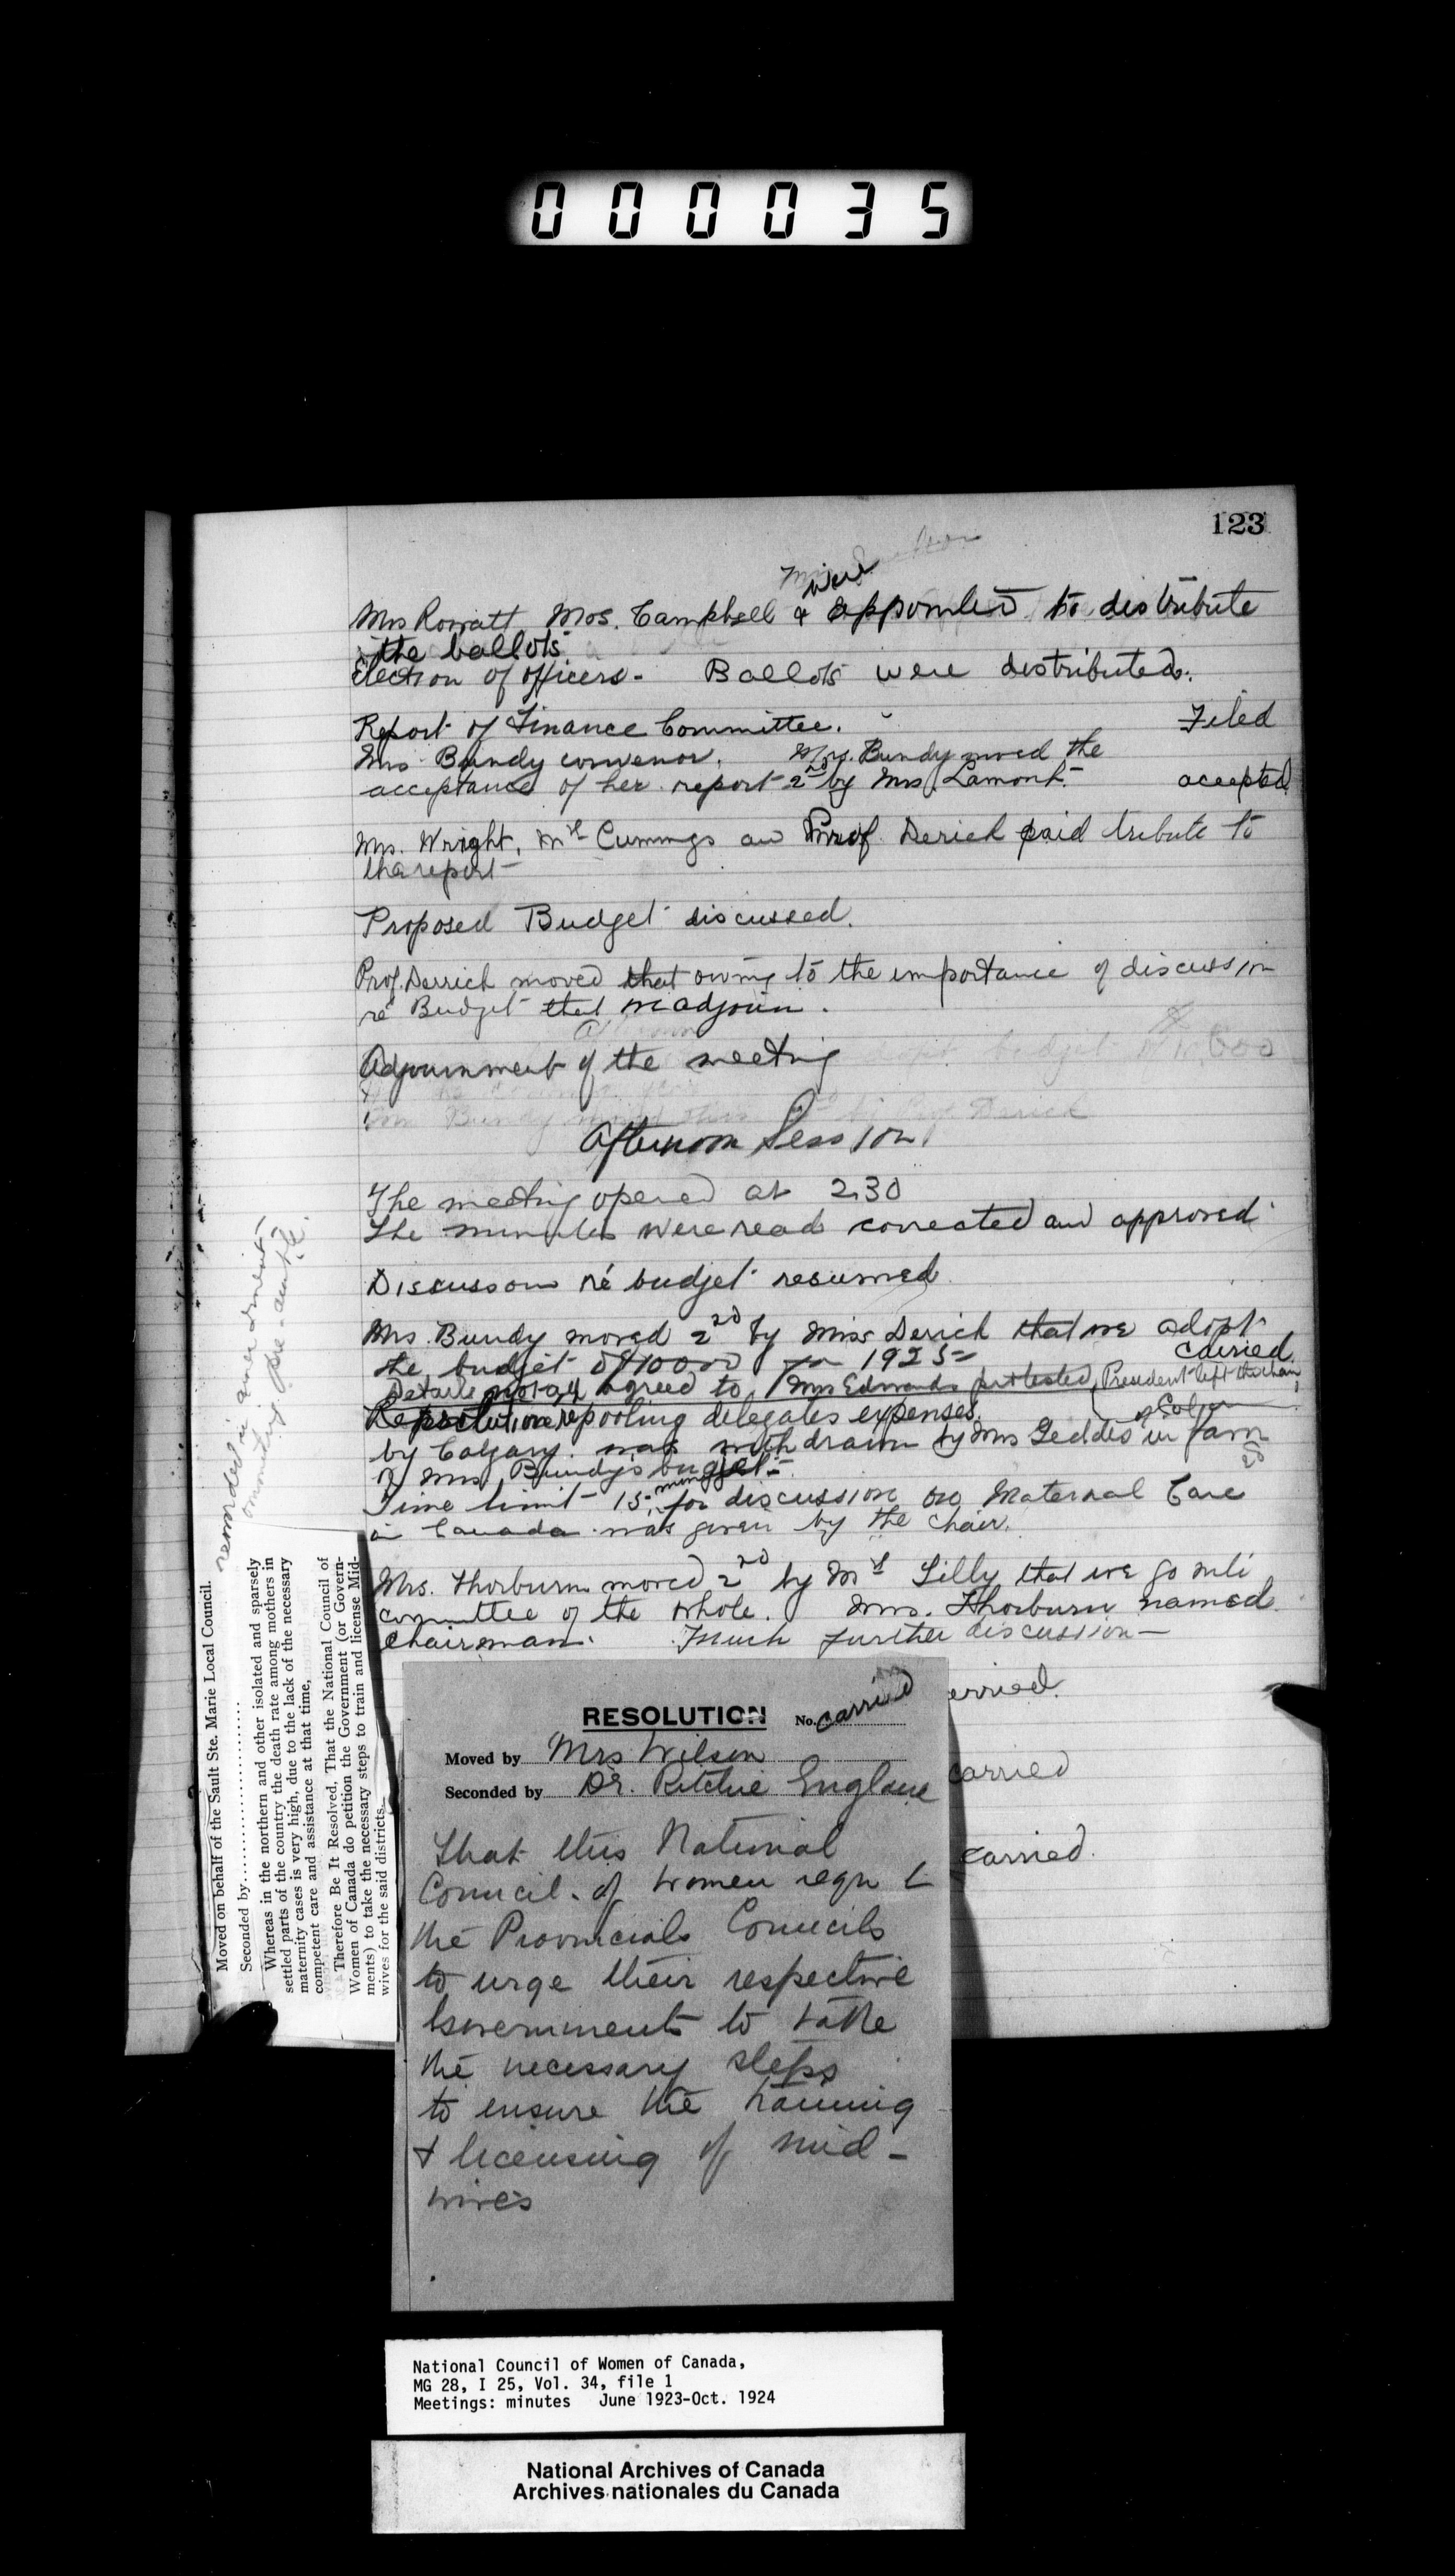 000035
123
were
Mrs Rowatt Mrs. Campbell & appointed to distribute
the ballots
Election of officers - Ballots were distributed.
Report of Finance Committee. Filed
Mrs Bundy convenor. Mrs. Bundy moved the
acceptance of her report 2nd by Mrs Lamont. accepted
Mrs. Wright, Mrs Cummings and Prof Derick paid tribute to
the report
Proposed Budget discussed.
Prof. Derrick moved that owing to the importance of discussion
re Budget that we adjourn.
Adjournment of the meeting
Afternoon Session
The meeting opened at 2.30
The minutes were read corrected and approved
Discussion re budget resumed
Mrs. Bundy moved 2nd by Miss Derick that we adopt
the budget of $10000 for 1925 - carried
Details agreed to. Mrs Edwards protested, President left the chair
Resolution re pooling delegates expenses
by Calgary was withdrawn by Mrs Geddes of Calgary in favor
of Mrs Bundy's budget -
Time limit - 15 mins for discussion on Maternal Care
in Canada was given by the chair.
Mrs. Thorburn moved 2nd by Mrs Lilly that we go into
committee of the whole. Mrs. Thorburn named
chairman. Much further discussion -
erried.
carried
carried.
reworded in amendment
omitting preamble.
Moved on behalf of the Sault Ste. Marie Local Council.
Seconded by........................
Whereas in the northern and other isolated and sparsely
settled parts of the country the death rate among mothers in
maternity cases is very high, due to the lack of the necessary
competent care and assistance at that time,
Therefore Be It Resolved, That the National Council of
Women of Canada do petition the Government (or Govern-
ments) to take the necessary steps to train and license Mid-
wives for the said districts.
RESOLUTION No. carried
Moved by Mrs Wilson
Seconded by Dr. Ritchie England
That this National
Council of Women
the Provincial Councils
to urge their respective
Governments to take
the necessary steps
to ensure the training
& licensing of mid-
wives
National Council of Women of Canada,
MG 28, I 25, Vol. 34, file 1
Meetings: minutes June 1923-Oct. 1924
National Archives of Canada
Archives nationales du Canada